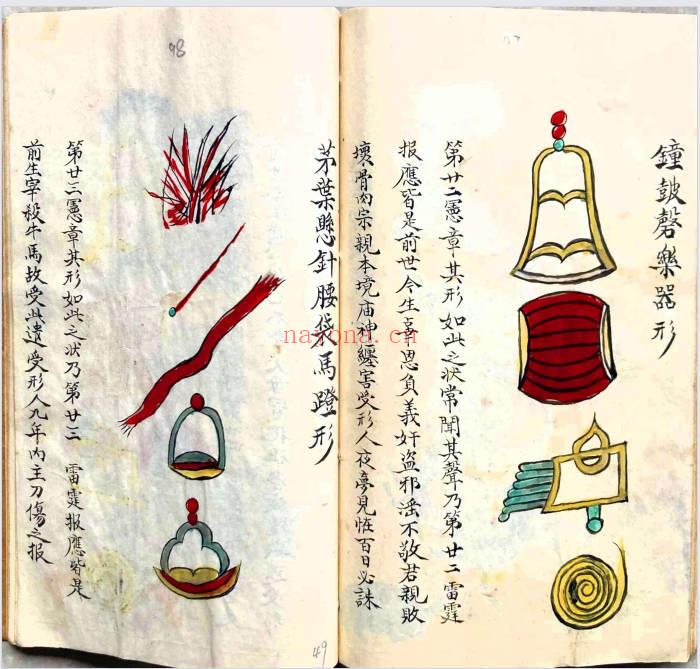 鐘鼓磬樂器形
第廿二憲章其形如此之状常聞其聲乃第廿二雷霆
报應皆是前世今生辜恩負義奸盗邪滛不敬君親敗
壞骨肉宗親本境庙神纒害受形人夜夢見恠百日必誅
茅葉懸針腰袋馬蹬形
第廿三憲章其形如此之状乃第廿三 雷霆报應皆是
前生宰殺牛馬故受此遣受形人九年内主刀傷之报
98
49
nayona.cn